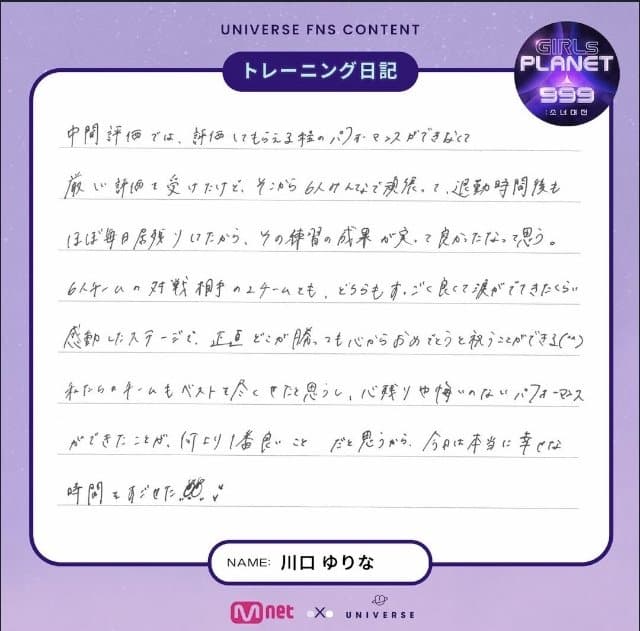 UNIVERSE FNS CONTENT
トレーニング日記
GIRLS
PLANET
999
:소녀대전
中間評価では、評価してもらえる程のパフォーマンスができなくて
厳しい評価を受けたけど、そこから6人みんなで頑張って、退勤時間後も
ほぼ毎日居残りしてたから、その練習の成果が実って良かったなって思う。
6人チームの対戦相手の2チームとも、どちらもすごく良くて涙がでてきたくらい
感動したステージで、正直どこが勝っても心からおめでとうと祝うことができる(^^)
私たちのチームもベストを尽くせたと思うし、心残りや悔いのないパフォーマンス
ができたことが、何より1番良いこと だと思うから、今日は本当に幸せな
時間をすごせた
NAME: 川口 ゆりな
Mnet X UNIVERSE